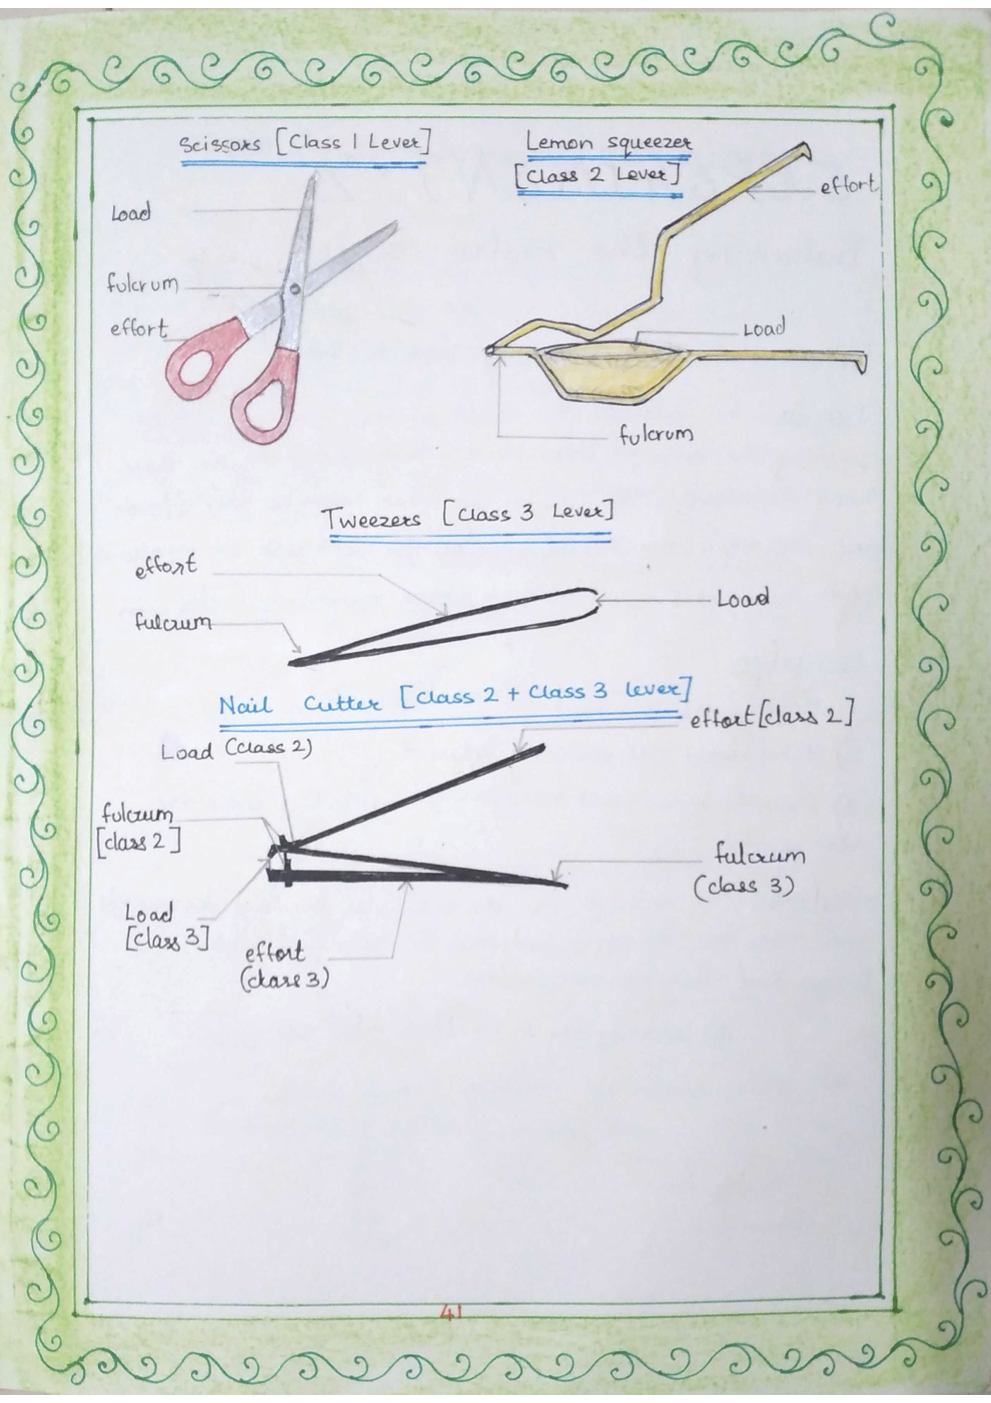 Scissors [Class 1 Lever]
Load
fulcrum
effort
Lemon squeezer
[Class 2 Lever]
effort
Load
fulcrum
Tweezers [Class 3 Lever]
effort
fulcrum
Load
Nail Cutter [Class 2 + Class 3 lever]
effort [class 2]
Load (Class 2)
fulcrum
[class 2]
fulcrum
(class 3)
Load
[class 3]
effort
(class 3)
41